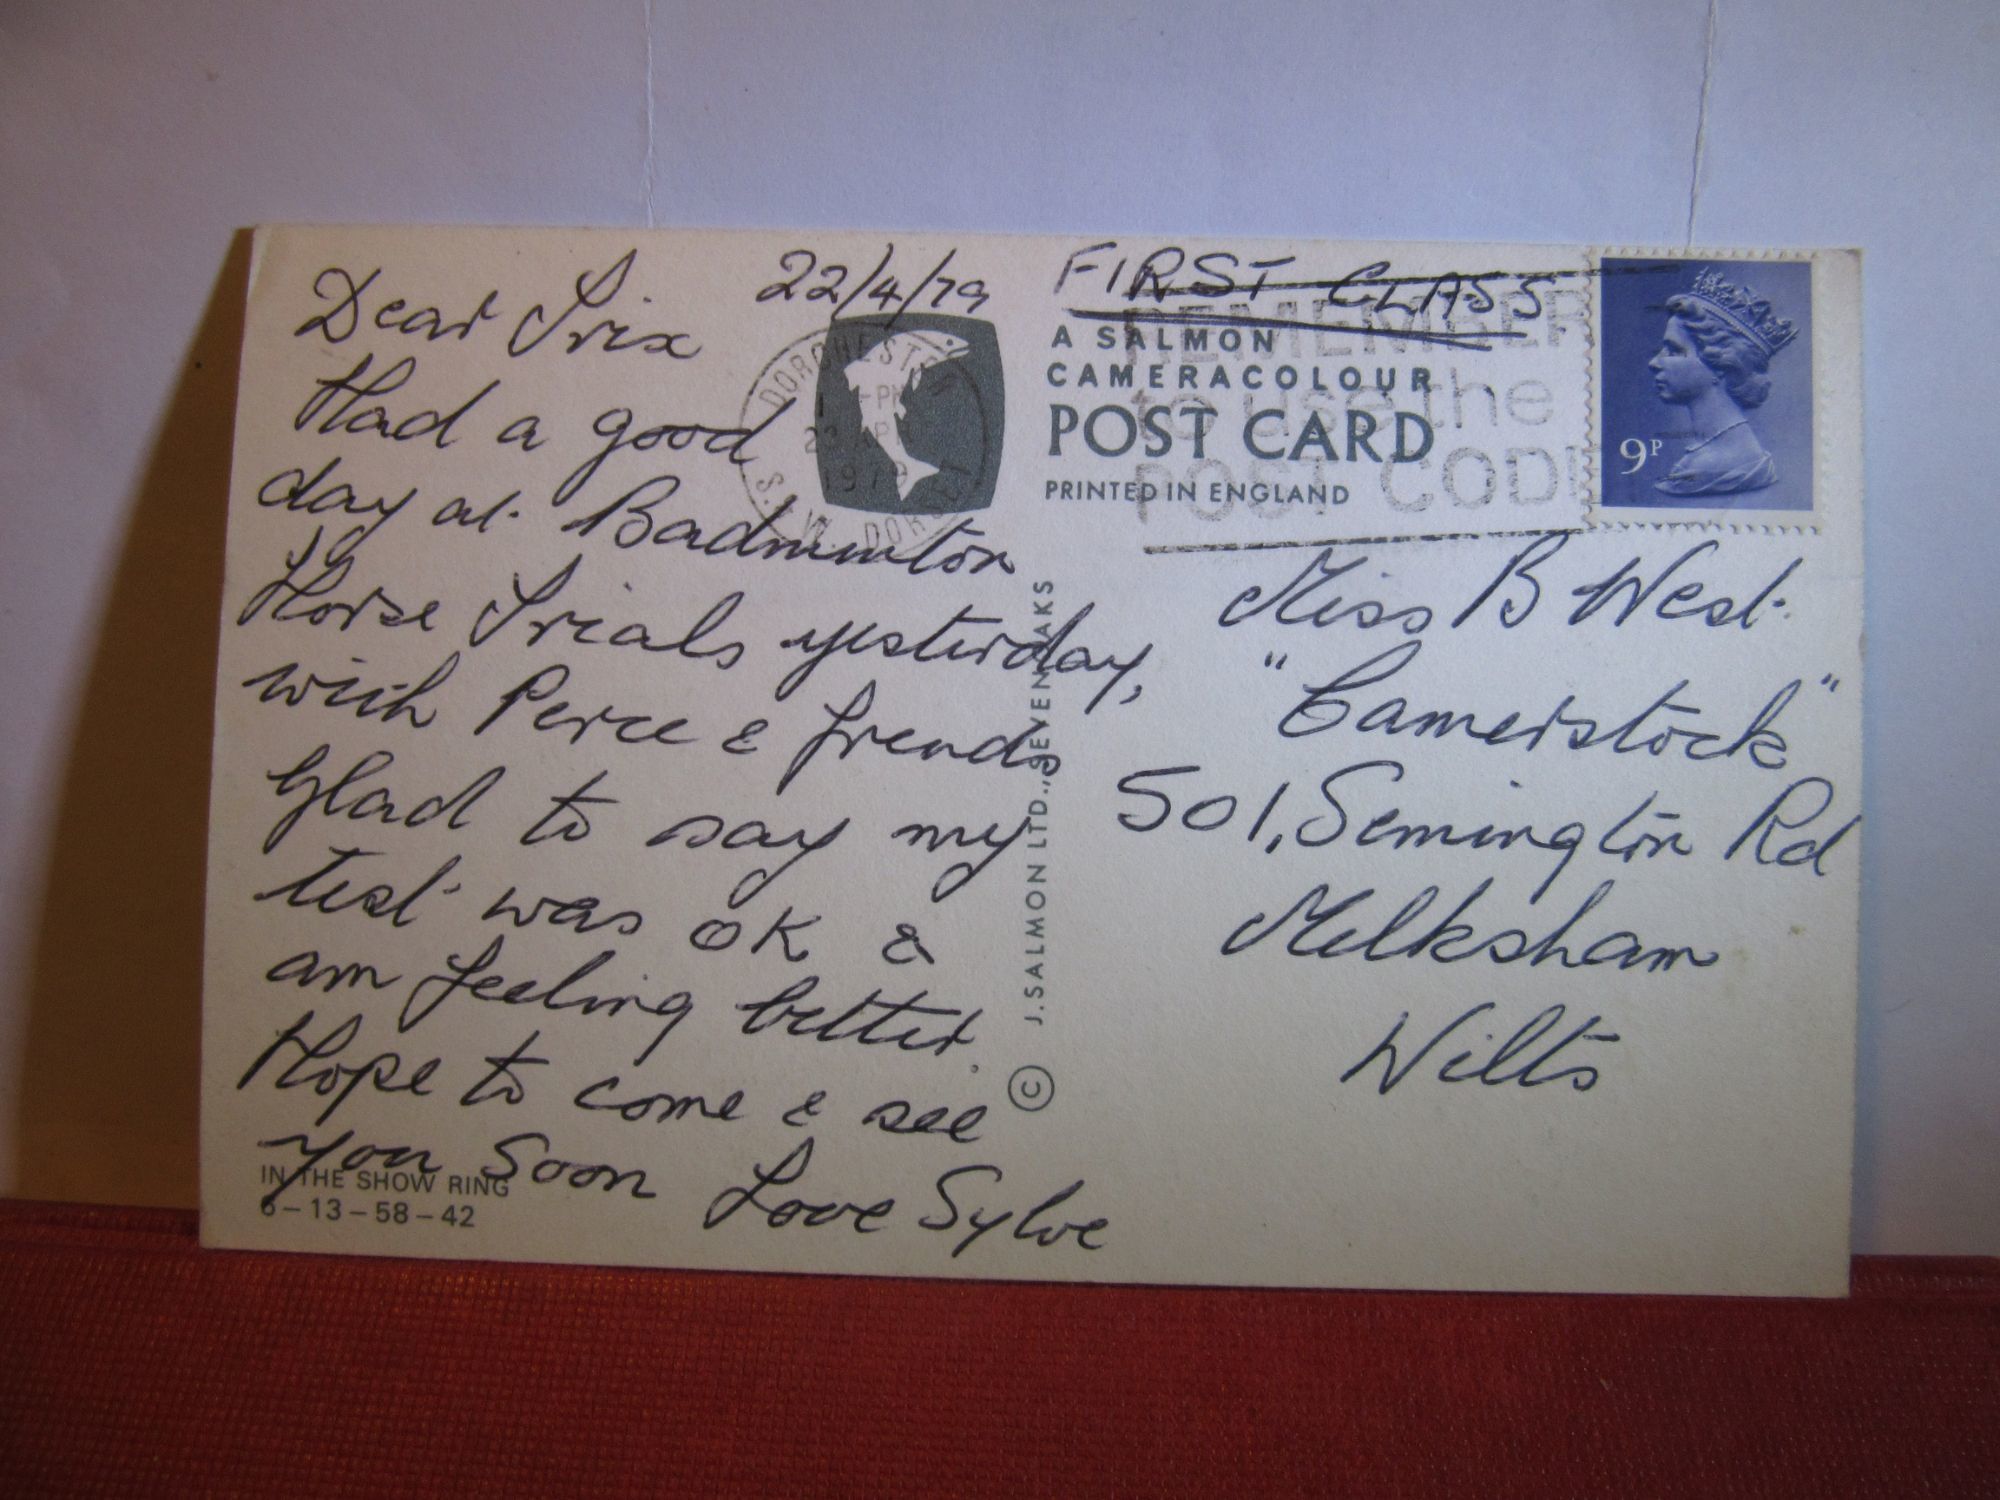 22/4/79
Dear Trix
Had a good
day at Badmimton
Horse Trials yesterday,
with Perce & friends
Glad to say my
test was OK &
am feeling better.
Hope to come & see
you Soon Love Sylve
IN THE SHOW RING
6-13-58-42
DORCHESTER
PM
APR
1979
S. W. DORSET
FIRST CLASS
A SALMON
CAMERACOLOUR
POST CARD
PRINTED IN ENGLAND
REMEMBER
to use the
POST CODE
9P
© J. SALMON LTD., SEVENOAKS
Miss B West
"Camerstock"
501, Semington Rd
Melksham
Wilts